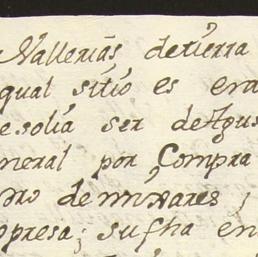 Vallerias detierra
qual sitio es era
e solia ser de Agus
neral por Compra
oro de
opresa; su fha en